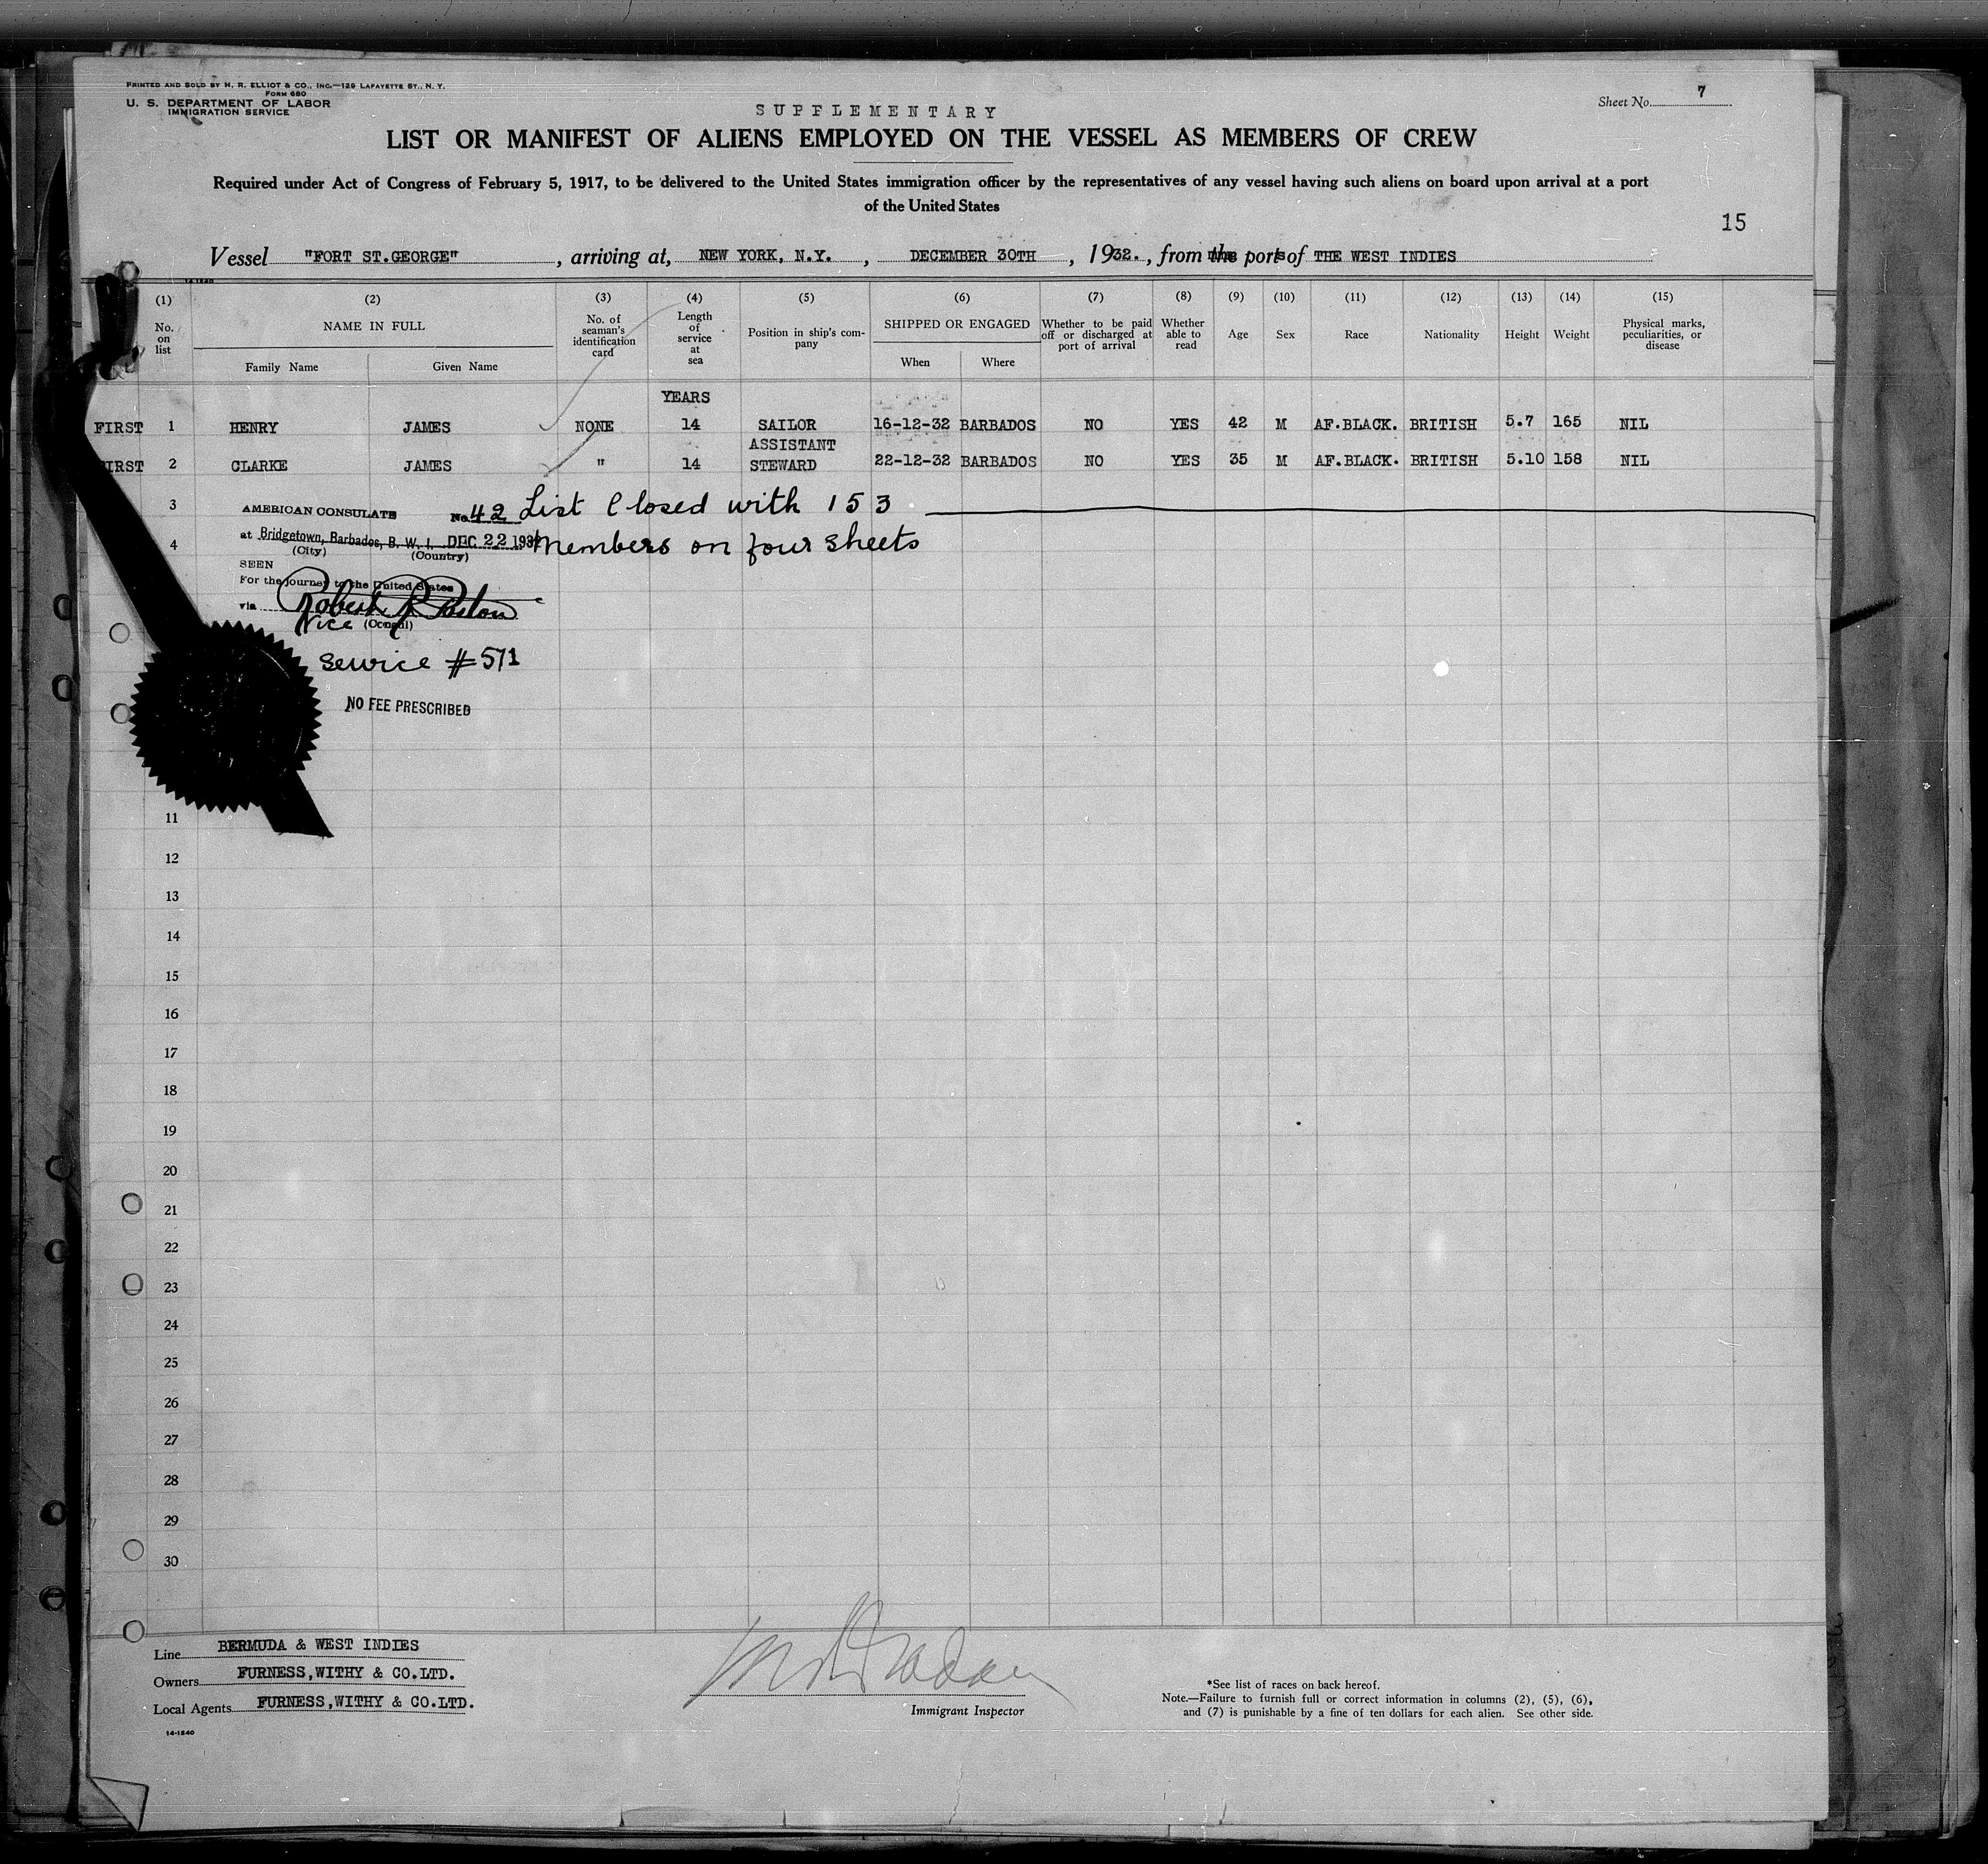 PRINTED AND SOLD BY H. R. ELLIOT & CO., INC.—129 LAFAYETTE ST., N. Y.
FORM 680
U. S. DEPARTMENT OF LABOR
IMMIGRATION SERVICE
Sheet No. 7
SUPPLEMENTARY
LIST OR MANIFEST OF ALIENS EMPLOYED ON THE VESSEL AS MEMBERS OF CREW
Required under Act of Congress of February 5, 1917, to be delivered to the United States immigration officer by the representatives of any vessel having such aliens on board upon arrival at a port
of the United States
15
Vessel "FORT ST.GEORGE", arriving at, NEW YORK, N.Y., DECEMBER 30TH, 1932., from the ports of THE WEST INDIES
14-1240
(1) (2) (3) (4) (5) (6) (7) (8) (9) (10) (11) (12) (13) (14) (15)
No. on list NAME IN FULL Family Name Given Name No. of seaman's identification card Length of service at sea Position in ship's company SHIPPED OR ENGAGED When Where Whether to be paid off or discharged at port of arrival Whether able to read Age Sex Race Nationality Height Weight Physical marks, peculiarities, or disease
YEARS
FIRST 1 HENRY JAMES NONE 14 SAILOR 16-12-32 BARBADOS NO YES 42 M AF.BLACK. BRITISH 5.7 165 NIL
ASSISTANT
FIRST 2 CLARKE JAMES " 14 STEWARD 22-12-32 BARBADOS NO YES 35 M AF.BLACK. BRITISH 5.10 158 NIL
3 AMERICAN CONSULATE No. 42 List Closed with 153
4 at Bridgetown, Barbados, B. W. I. DEC 22 1932 Members on four sheets
(City) (Country)
SEEN
For the journey to the United States
via
Vice (Consul)
Service #571
NO FEE PRESCRIBED
11
12
13
14
15
16
17
18
19
20
21
22
23
24
25
26
27
28
29
30
Line BERMUDA & WEST INDIES
Owners FURNESS,WITHY & CO.LTD.
Local Agents FURNESS,WITHY & CO.LTD.
14-1240
Immigrant Inspector
*See list of races on back hereof.
Note.—Failure to furnish full or correct information in columns (2), (5), (6),
and (7) is punishable by a fine of ten dollars for each alien. See other side.